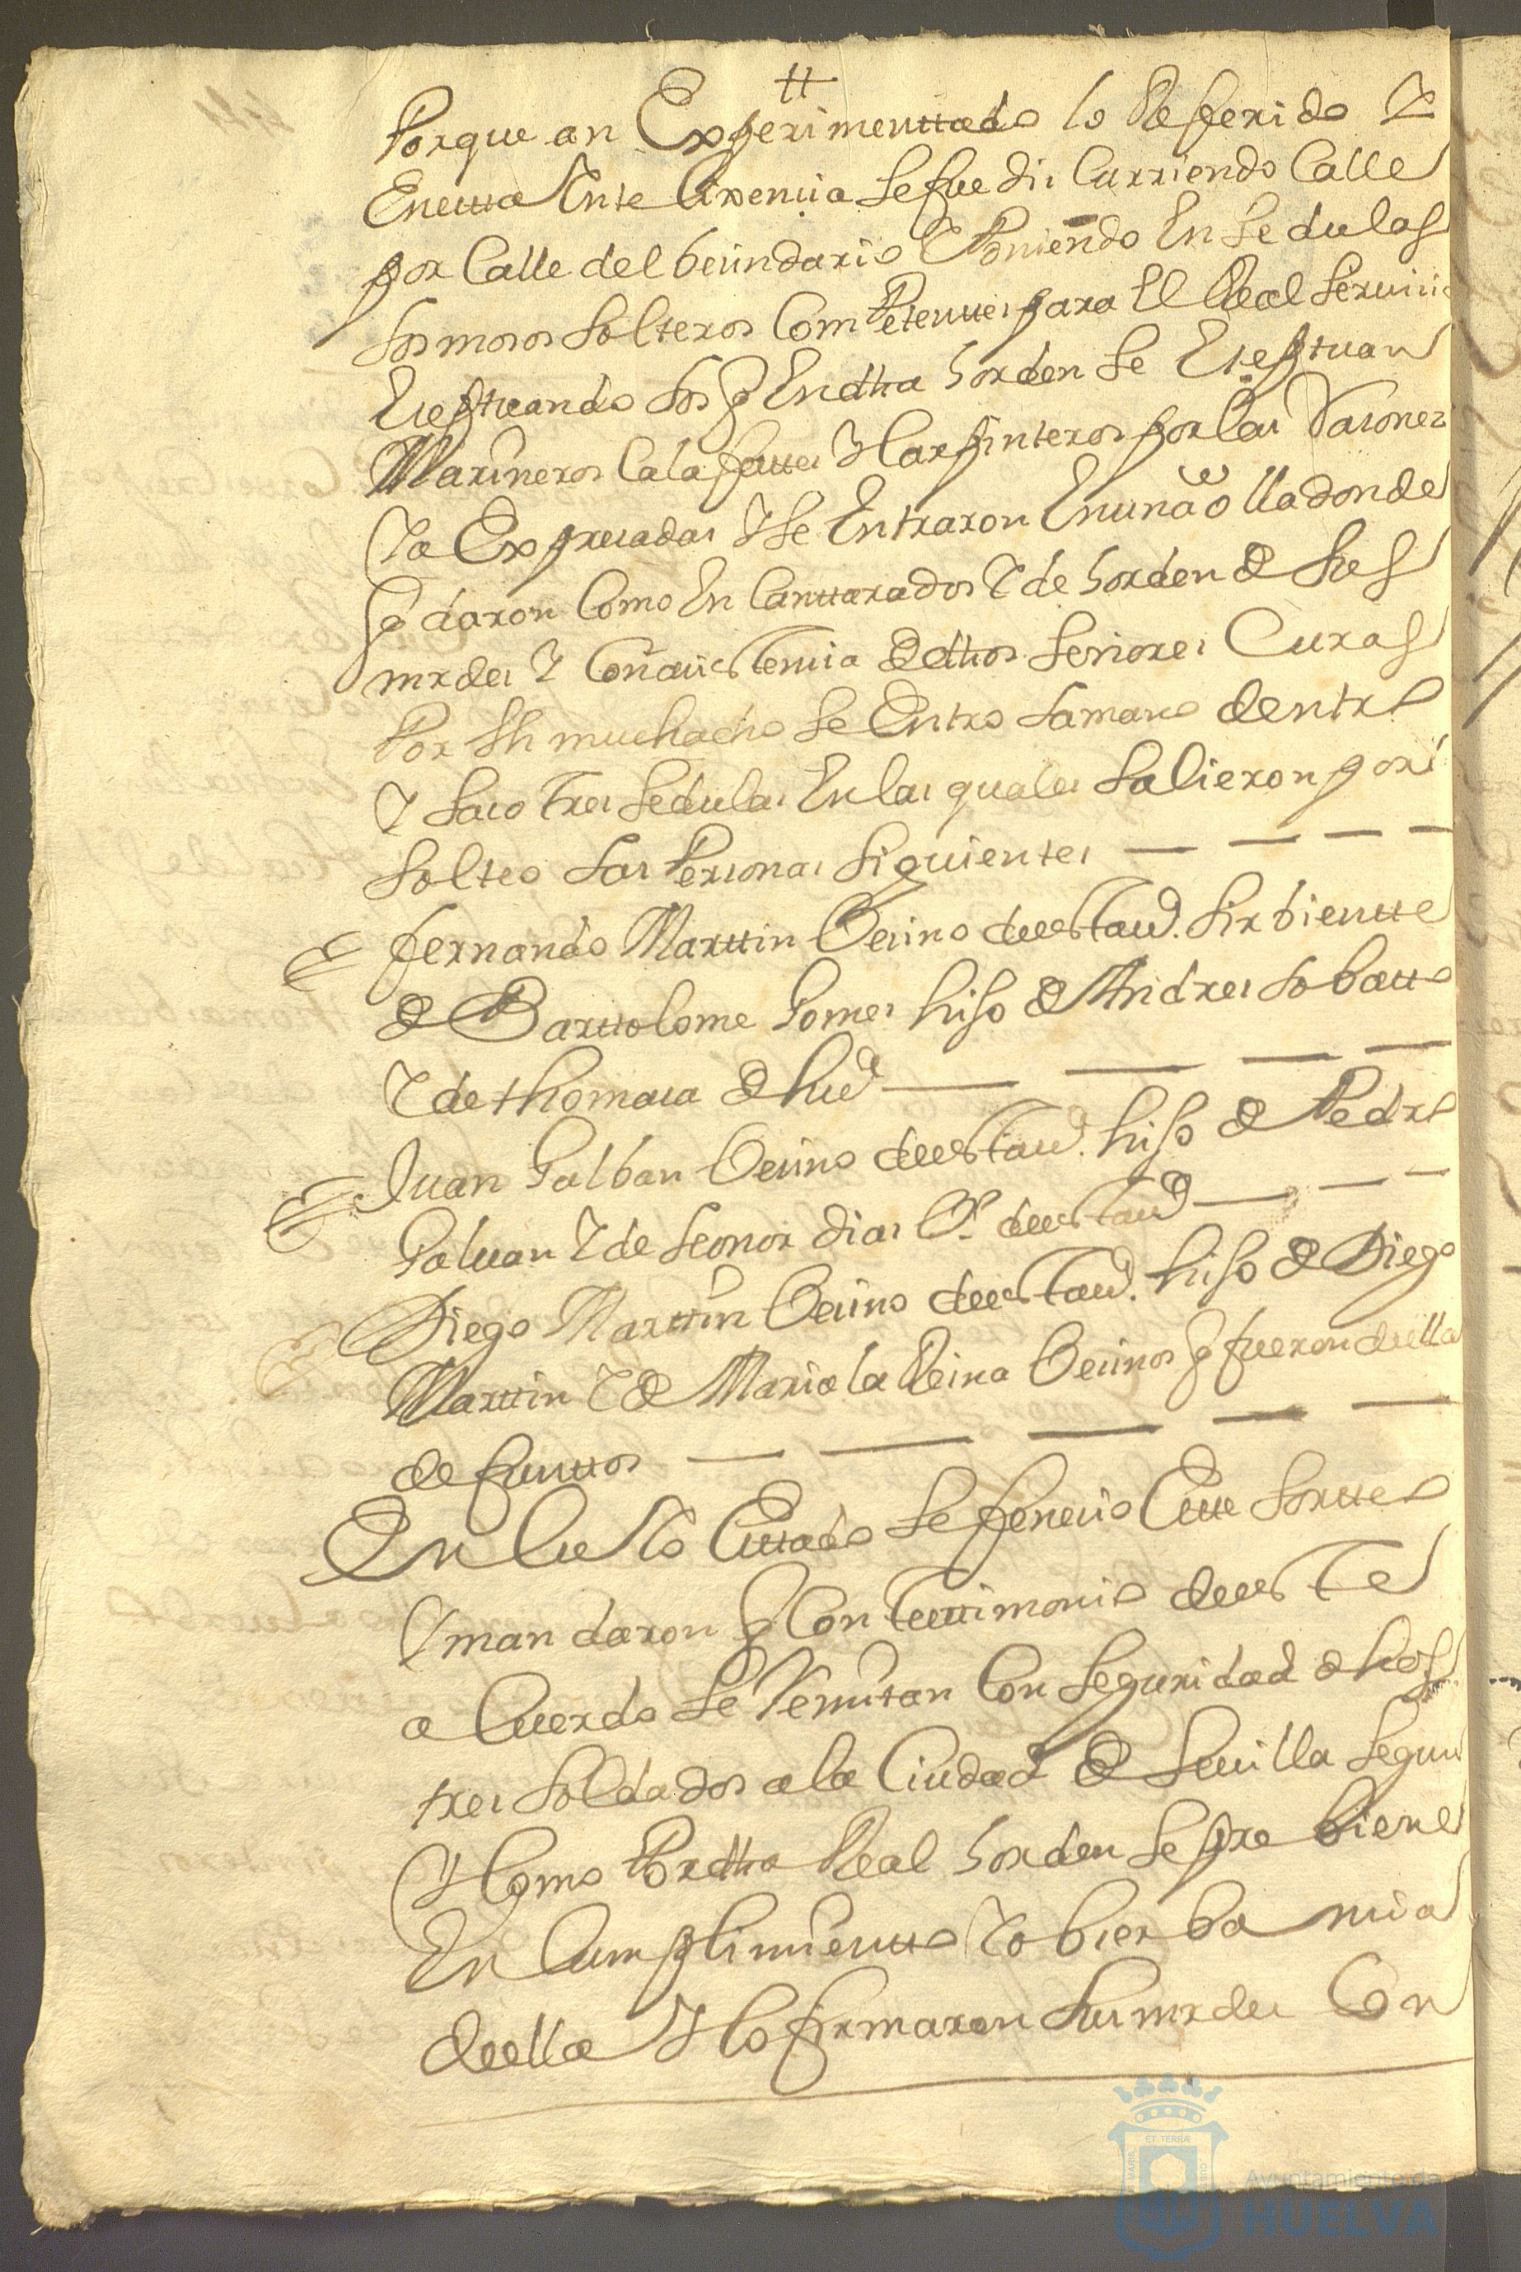 tt
Porque an Experimenttado lo Referido Y
En etta Yntelixencia se fue discurriendo Calle
por Calle del becindario Y Poniendo En Sedulas
los mosos Solteros Competenttes para El Real Servicio
Eseptuando los q En dha horden se Eseptuan
Marineros Calafattes Y Carpinteros por las Rasones
Ya Expresadas Y Se Entraron En un
q daron Como En Canttarados Y de horden de Sus
mrdes Y Con asistencia de dhos Señores Curas
Por Un muchacho Se Entro la mano dentro
Y Saco tres Sedulas En las quales Salieron por
Solteo las Personas Siguientes
fernando Marttin Vecino de esta Vª. Sirbientte
de Barttolome Gomes hiJo de Andres lobatto
Y de thomasa de hueª
Juan Galban Vecino de esta Vª. hiJo de Pedro
Galuan Y de leonor dias Vs. de esta Vª
Diego Marttin Vecino de esta Vª. hiJo de Diego
Marttin Y de Maria la Reina Vecinos q fueron de ella
de funttos
En Cuio Esttado Se fenecio Este Sortteo
Y man daron q Con testtimonio de este
a Cuerdo Se Remitan Con Seguridad dhos
tres Soldados a la Ciudad de Seuilla Segun
Y Como Por dha Real horden Se pre biene
En Cumplimientto Y obserbancia
de ella Y lo firmaron Sus mrdes Con
Ayuntamiento de
HUELVA